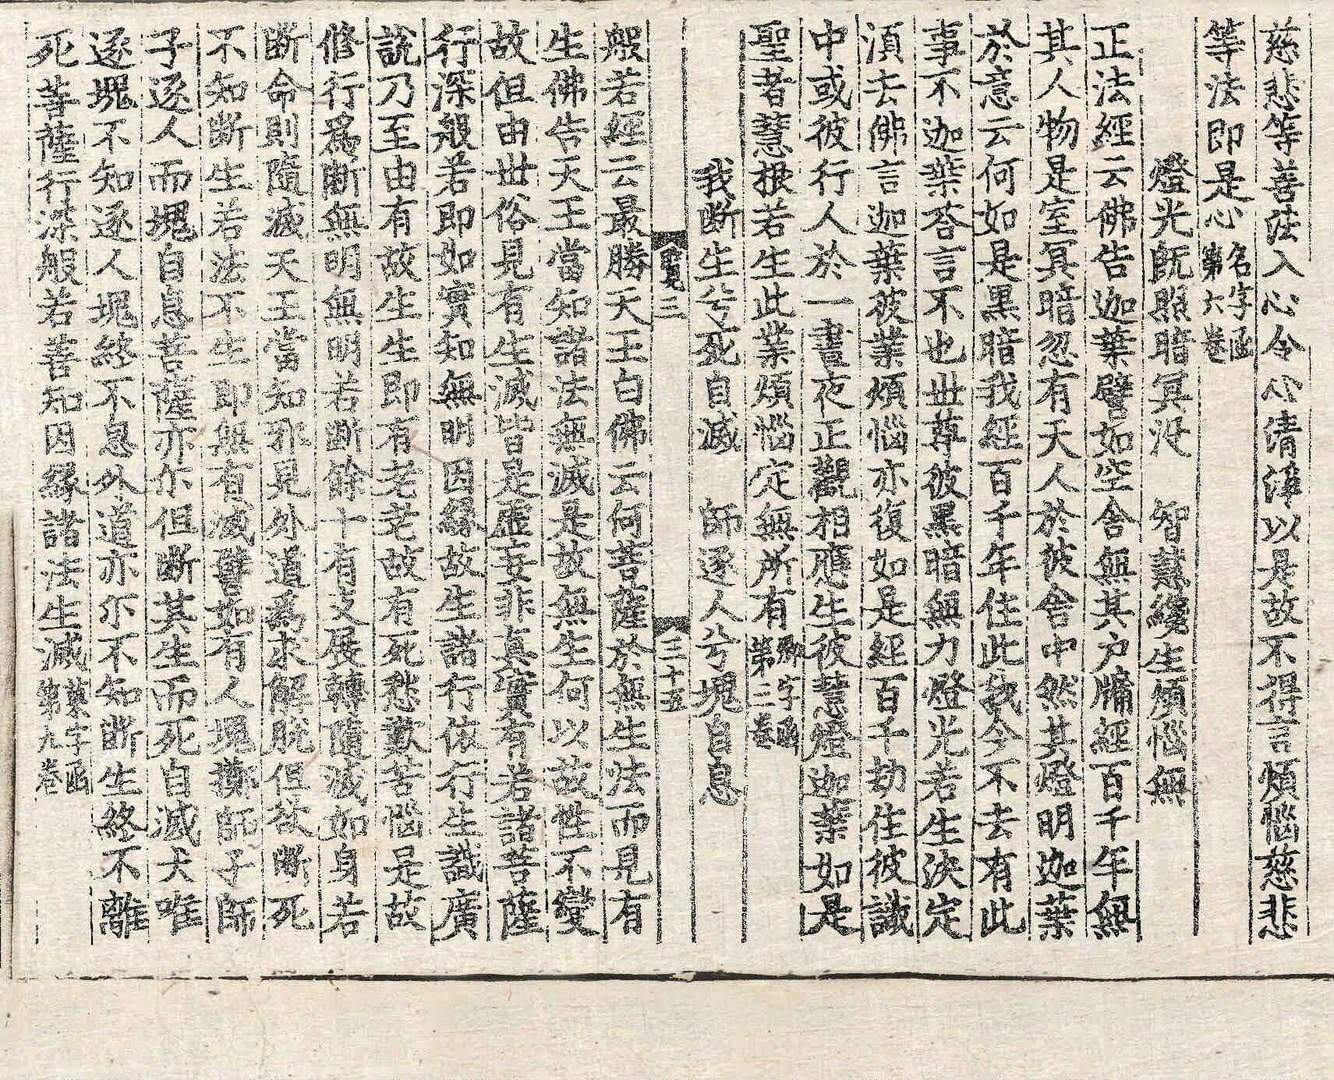 慈悲等善法入心令心清淨以是故不得言煩惱慈悲
等法即是心名字函第六卷
燈光旣照暗冥沒　智慧纔生煩惱無
正法經云佛告迦葉譬如空舍無其戶牖經百千年無
其人物是室冥暗忽有天人於彼舍中然其燈明迦葉
於意云何如是黑暗我經百千年住此我今不去有此
事不迦葉荅言不也世尊彼黑暗無力燈光若生決定
湏去佛言迦葉彼業煩惱亦復如是經百千劫住彼識
中或彼行人於一晝夜正觀相應生彼慧燈迦葉如是
聖者慧根若生此業煩惱定無所有第二卷
我斷生兮死自滅　師逐人兮塊自息
三　三十五
般若經云最勝天王白佛云何菩薩於無生法而見有
生佛告天王當知諸法無滅是故無生何以故性不變
故但由世俗見有生滅皆是虛妄非真實有若諸菩薩
行深般若即如實知無明因緣故生諸行依行生識廣
說乃至由有故生生即有老老故有死愁歎苦惱是故
修行爲斷無明無明若斷餘十有支展轉隨滅如身若
斷命則隨滅天王當知邪見外道爲求解脫但欲斷死
不知斷生若法不生即無有滅譬如有人塊擲師子師
子逐人而塊自息菩薩亦尒但斷其生而死自滅犬唯
逐塊不知逐人塊終不息外道亦尒不知斷生終不離
死菩薩行深般若善知因緣諸法生滅第九卷